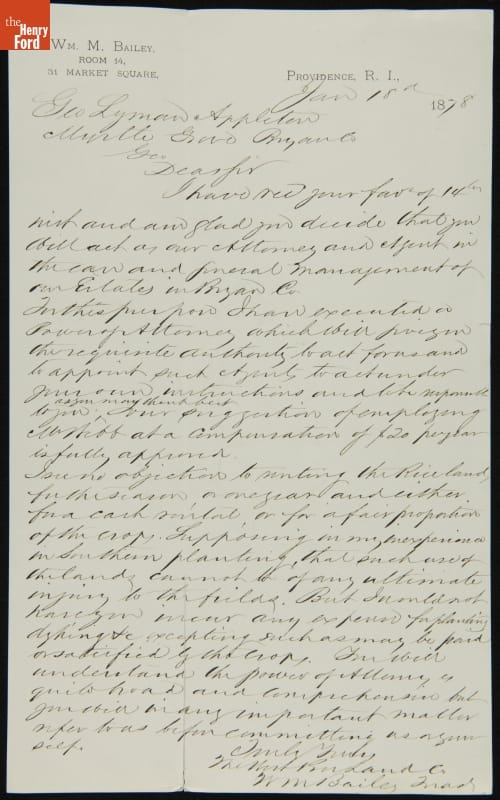 the
Henry
Ford
WM. M. BAILEY,
ROOM 14,
31 MARKET SQUARE,
PROVIDENCE, R. I.,
Jan 18d 1878
Geo Lyman Appleton
Myrtle Grove Bryan Co
Geo
Dear Sir
I have recd your favr of 14th
inst and am glad you decide that you
will act as our Attorney and Agent in
the care and general management of
our Estates in Bryan Co.
For this purpose I have executed a
Power of Attorney which will give you
the requisite authority to act for us and
to appoint such Agents to act under
your own instructions and to be responsible
as you may think best
to you. Your suggestion of employing
Mr at a compensation of $20 per year
is fully approved.
I see no objection to renting the Rice lands
for the season or one year and either
for a cash rental or for a fair proportion
of the crops. Supposing in my inexperience
in Southern planting, that such use of
the lands cannot be of any ultimate
injury to the fields. But I would not
have you incur any expense for planting
dyking &c excepting such as may be paid
or satisfied by the crops. You will
understand the power of Attorney is
quite broad and comprehensive but
you will in any important matter
refer to us before committing us or your
self.
Truly Yours
The Land Co
Wm M Bailey Treas